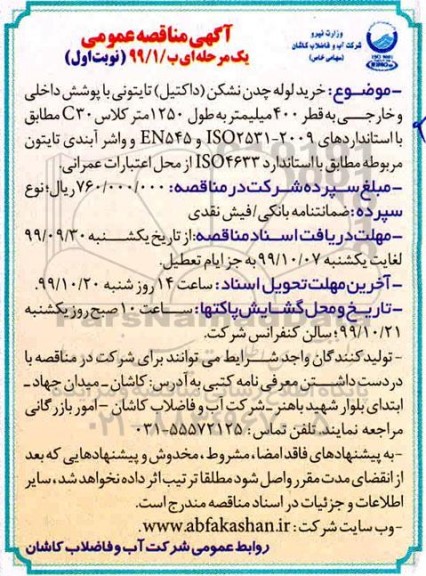 وزارت نیرو
شرکت آب و فاضلاب کاشان
(سهامی خاص)
آگهی مناقصه عمومی
یک مرحله‌ای ب/۹۹/۱ (نوبت اول)
-موضوع: خرید لوله چدن نشکن (داکتیل) تایتونی با پوشش داخلی
و خارجی به قطر ۴۰۰ میلیمتر به طول ۱۲۵۰ متر کلاس C۳۰ مطابق
با استانداردهای ISO۲۵۳۱-۲۰۰۹ و EN۵۴۵ و واشر آبندی تایتون
مربوطه مطابق با استاندارد ISO۴۶۳۳ از محل اعتبارات عمرانی.
-مبلغ سپرده شرکت در مناقصه: ۷۶۰/۰۰۰/۰۰۰ ریال؛ نوع
سپرده: ضمانتنامه بانکی/فیش نقدی
-مهلت دریافت اسناد مناقصه: از تاریخ یکشنبه ۹۹/۰۹/۳۰
لغایت یکشنبه ۹۹/۱۰/۰۷ به جز ایام تعطیل.
-آخرین مهلت تحویل اسناد: ساعت ۱۴ روز شنبه ۹۹/۱۰/۲۰.
-تاریخ و محل گشایش پاکتها: ساعت ۱۰ صبح روز یکشنبه
۹۹/۱۰/۲۱؛ سالن کنفرانس شرکت.
- تولیدکنندگان واجد شرایط می توانند برای شرکت در مناقصه با
در دست داشتن معرفی نامه کتبی به آدرس: کاشان-میدان جهاد-
ابتدای بلوار شهید باهنر-شرکت آب و فاضلاب کاشان-امور بازرگانی
مراجعه نمایند. تلفن تماس: ۵۵۵۷۲۱۲۵-۰۳۱
-به پیشنهادهای فاقد امضا، مشروط، مخدوش و پیشنهادهایی که بعد
از انقضای مدت مقرر واصل شود مطلقا ترتیب اثر داده نخواهد شد، سایر
اطلاعات و جزئیات در اسناد مناقصه مندرج است.
-وب سایت شرکت: www.abfakashan.ir
روابط عمومی شرکت آب و فاضلاب کاشان